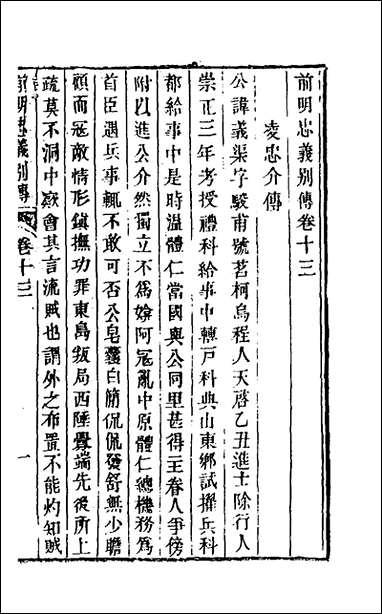 前明忠義別傳卷十三
凌忠介傳
公諱義渠字駿甫號茗柯烏程人天啓乙丑進士除行人
崇正三年考授禮科給事中轉戸科典山東鄉試擢兵科
都給事中是時溫體仁當國與公同里甚得主眷人爭傍
附以進公介然獨立不爲媕阿冦亂中原體仁總機務爲
首臣遇兵事輒不敢可否公皂囊白簡侃侃發舒無少瞻
顧而冦敵情形鎭撫功罪東島叛局西陲釁端先後所上
疏莫不洞中窾會其言流賊也謂外之布置不能灼知賊
前明忠義別傳
卷十三
一